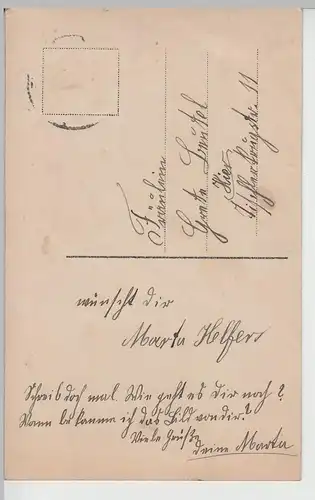 Fräulein
Grete Bentel
Hier
11
wünscht dir
Marta Helfers
Schreib doch mal. Wie geht es Dir noch?
Wann bekomme ich das Bild von dir?
Viele Grüße
deine Marta